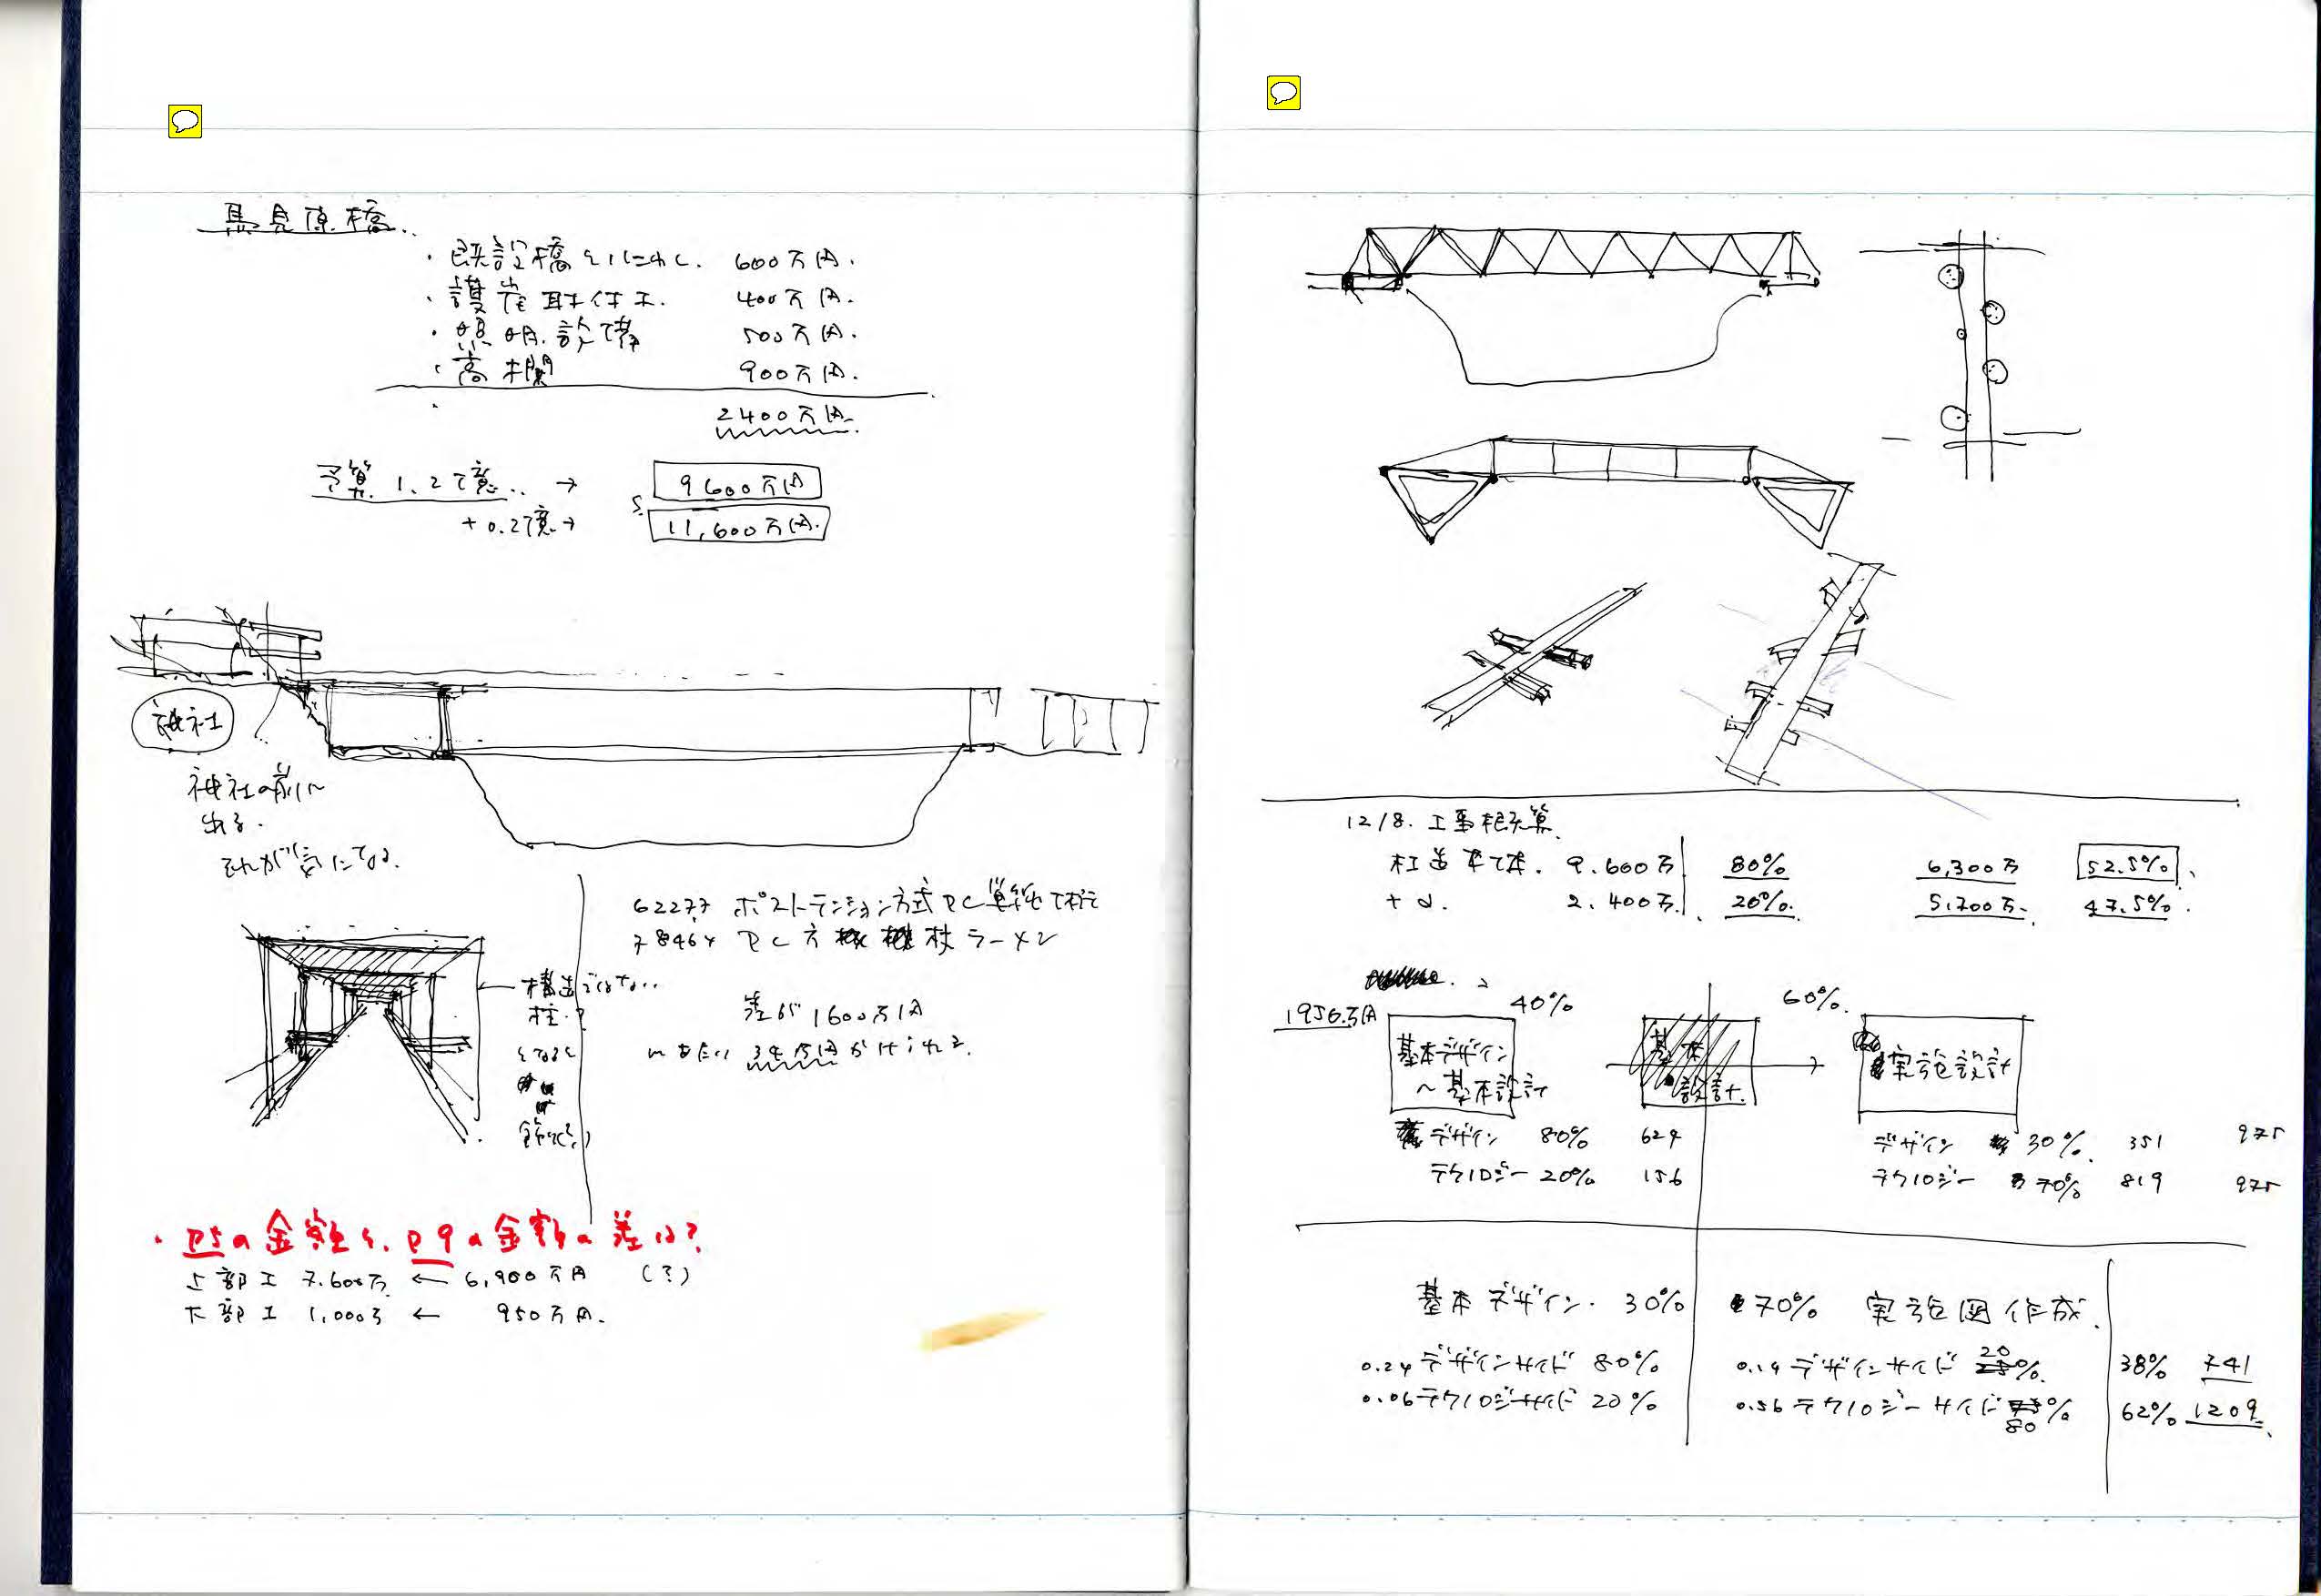 馬見原橋
・既設橋とりこわし. 600万円.
・護岸取付工. 400万円.
・照明.設備 500万円.
・高欄 900万円.
2400万円
予算 1.2億.. → 9600万円
+0.2億→ 11,600万円.
神社
神社の前に
出る.
それが気になる.
62277 ポストテンション方式PC単純
78464 PC方 ラーメン
構造ではない..
柱.?
差が1600万円
P5の金額と、P9の金額の差は?
上部工 7.600万 ← 6,900万円 (?)
下部工 1,000万 ← 950万円.
12/8. 工事概算.
構造本体. 9.600万 80% 6,300万 52.5%
+α. 2.400万. 20%. 5,700万. 47.5%.
1956万円 40% 60%.
基本デザイン
〜基本設計
基本
設計.
実施設計
デザイン 80% 624
テクノロジー 20% 156
デザイン 30%. 351 975
テクノロジー 70% 819 975
基本デザイン. 30% 70% 実施図作成.
0.24 デザインサイド 80% 0.14 デザインサイド 20%. 38% 741
0.06 テクノロジサイド 20% 0.56 テクノロジーサイド 80% 62% 1209